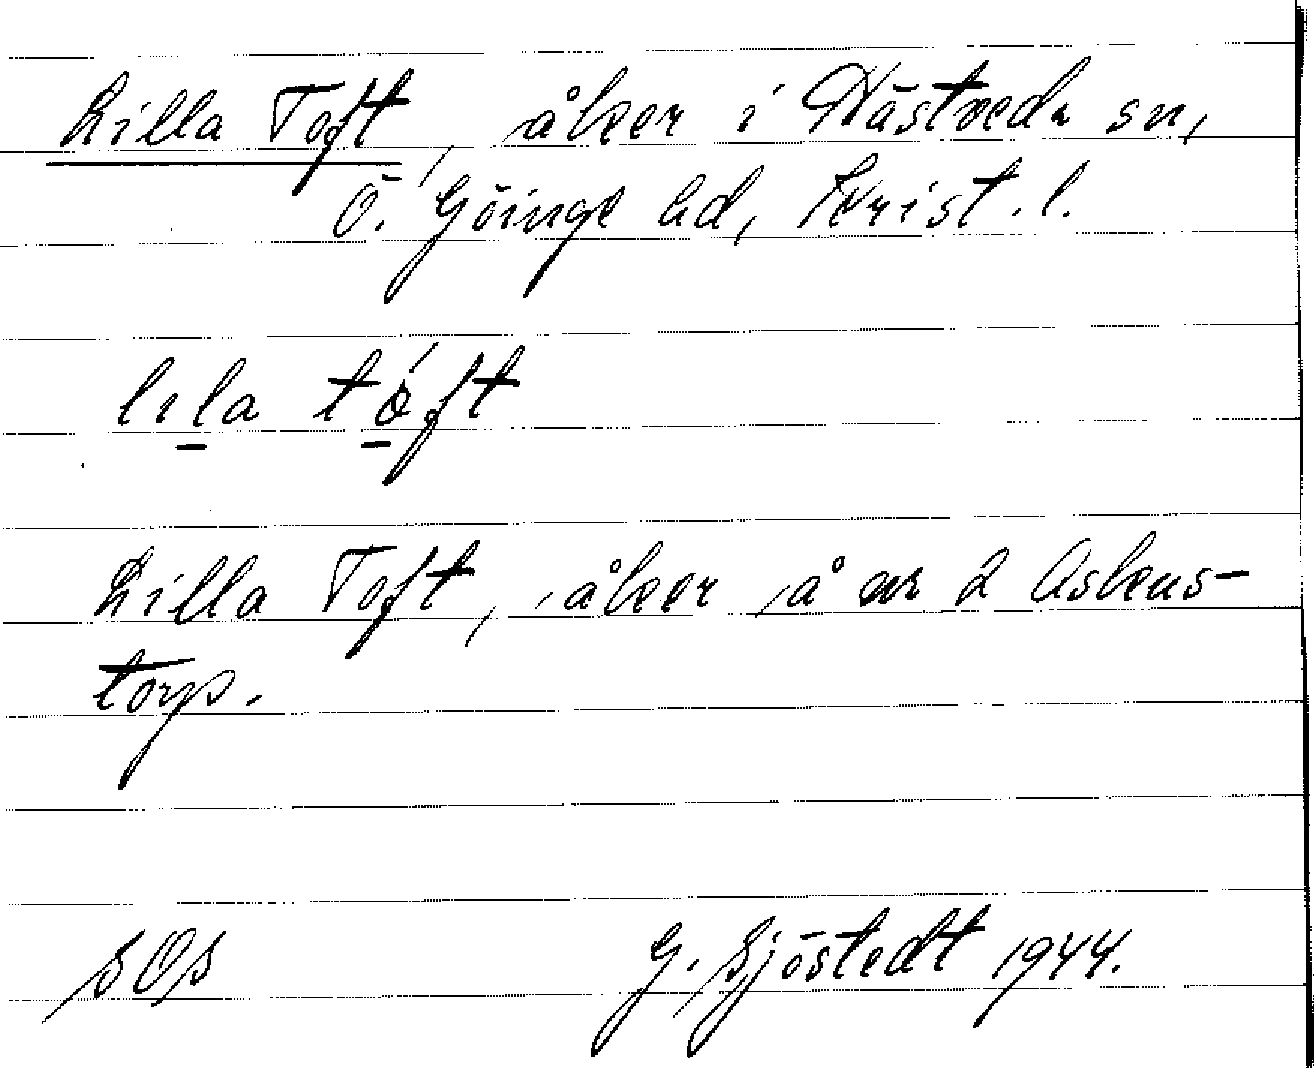 Lilla Toft, åker i Hästveda sn,
Ö. Göinge hd, Krist. l.
lıla tóft
Lilla Toft, åker å nr 2 Askens-
torp.
SOS G. Sjöstedt 1944.